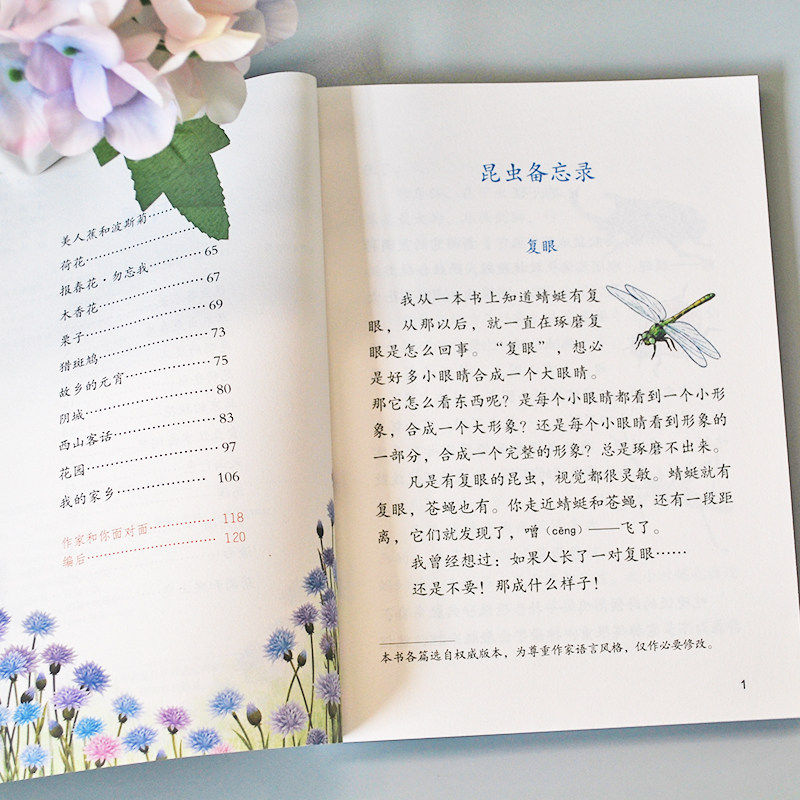 美人蕉和波斯菊……
荷花……
报春花·勿忘我……65
木香花……67
栗子……69
猎斑鸠……73
故乡的元宵……75
阴城……80
西山客话……83
花园……97
我的家乡……106
作家和你面对面……118
编后……120
昆虫备忘录
复眼
我从一本书上知道蜻蜓有复
眼，从那以后，就一直在琢磨复
眼是怎么回事。“复眼”，想必
是好多小眼睛合成一个大眼睛。
那它怎么看东西呢？是每个小眼睛都看到一个小形
象，合成一个大形象？还是每个小眼睛看到形象的
一部分，合成一个完整的形象？总是琢磨不出来。
凡是有复眼的昆虫，视觉都很灵敏。蜻蜓就有
复眼，苍蝇也有。你走近蜻蜓和苍蝇，还有一段距
离，它们就发现了，噌（cēng）——飞了。
我曾经想过：如果人长了一对复眼……
还是不要！那成什么样子！
本书各篇选自权威版本，为尊重作家语言风格，仅作必要修改。
1